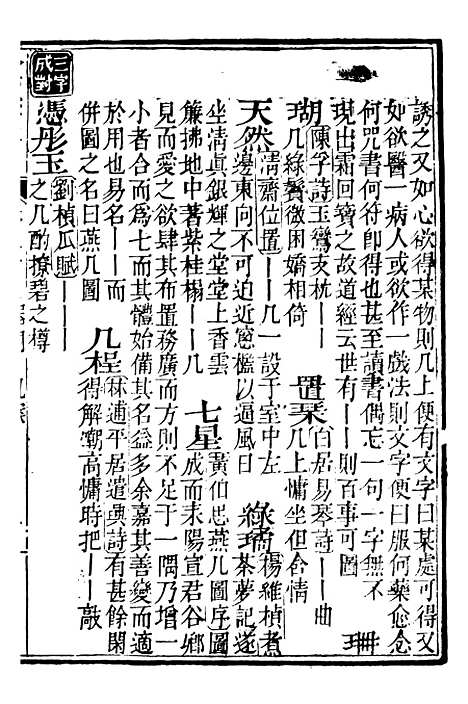 誘之又如心欲得某物則几上便有文字曰某處可得又
如欲醫一病人或欲作一戲法則文字便曰服何藥愈念
何咒書何符即得也甚至讀書偶忘一句一字無不
現出霜回寶之故道經云世有——則百事可圖
珊
瑚
陳孚詩玉鸞支枕———
几綠鬢微困嬌相倚
置琴
白居易琴詩——曲
几上慵坐但含情
天然
清齋位置——几一設于室中左
邊東向不可迫近窻檻以逼風日
綠瑤
楊維楨煮
茶夢記遂
坐清眞銀輝之堂堂上香雲
簾拂地中著紫桂榻——几
七星
黃伯思燕几圖序圖
成而耒陽宣君谷鄉
見而愛之欲肆其布置務廣而方則不足于一隅乃增一
小者合而為七而其體始備其名益多余嘉其善變而適
於用也易名——而
併圖之名曰燕几圖
几桯
林逋平居遣興詩有甚餘閑
得解潮高慵時把——敲
三字成對
憑彤玉
劉楨瓜賦———
之几酌撩碧之樽